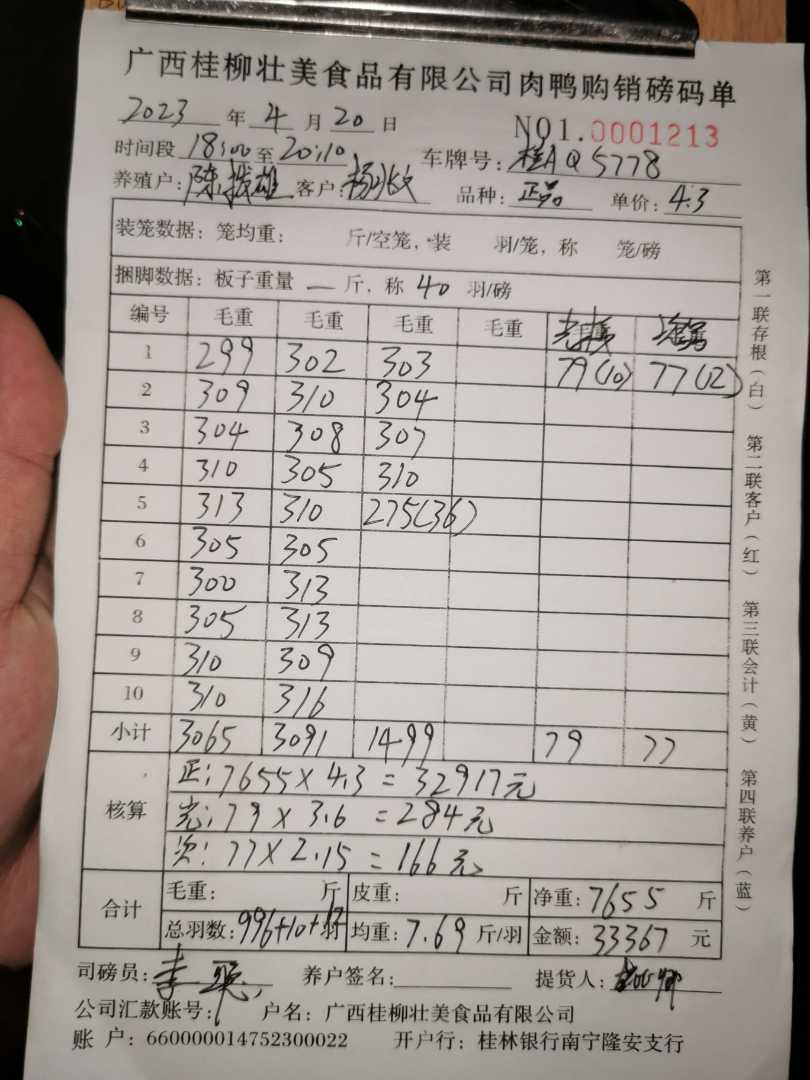 广西桂柳壮美食品有限公司肉鸭购销磅码单
2023 年 4 月 20 日 NO1.0001213
时间段 18:00 至 20:10 车牌号: 桂A Q5778
养殖户: 陈 雄 客户: 杨 品种: 正品 单价: 4.3
装笼数据: 笼均重: 斤/空笼, 装 羽/笼, 称 笼/磅
捆脚数据: 板子重量 — 斤, 称 40 羽/磅
编号 毛重 毛重 毛重 毛重
1 299 302 303 79(10) 77(12)
2 309 310 304
3 304 308 307
4 310 305 310
5 313 310 275(36)
6 305 305
7 300 313
8 305 313
9 310 309
10 310 316
小计 3065 3091 1499 79 77
核算 正: 7655 × 4.3 = 32917元
光: 79 × 3.6 = 284元
次: 77 × 2.15 = 166元
合计 毛重: 斤 皮重: 斤 净重: 7655 斤
总羽数: 996+10+12 羽 均重: 7.69 斤/羽 金额: 33367 元
司磅员: 李 养户签名: 提货人:
公司汇款账号: 户名: 广西桂柳壮美食品有限公司
账 户: 660000014752300022 开户行: 桂林银行南宁隆安支行
第一联存根(白) 第二联客户(红) 第三联会计(黄) 第四联养户(蓝)